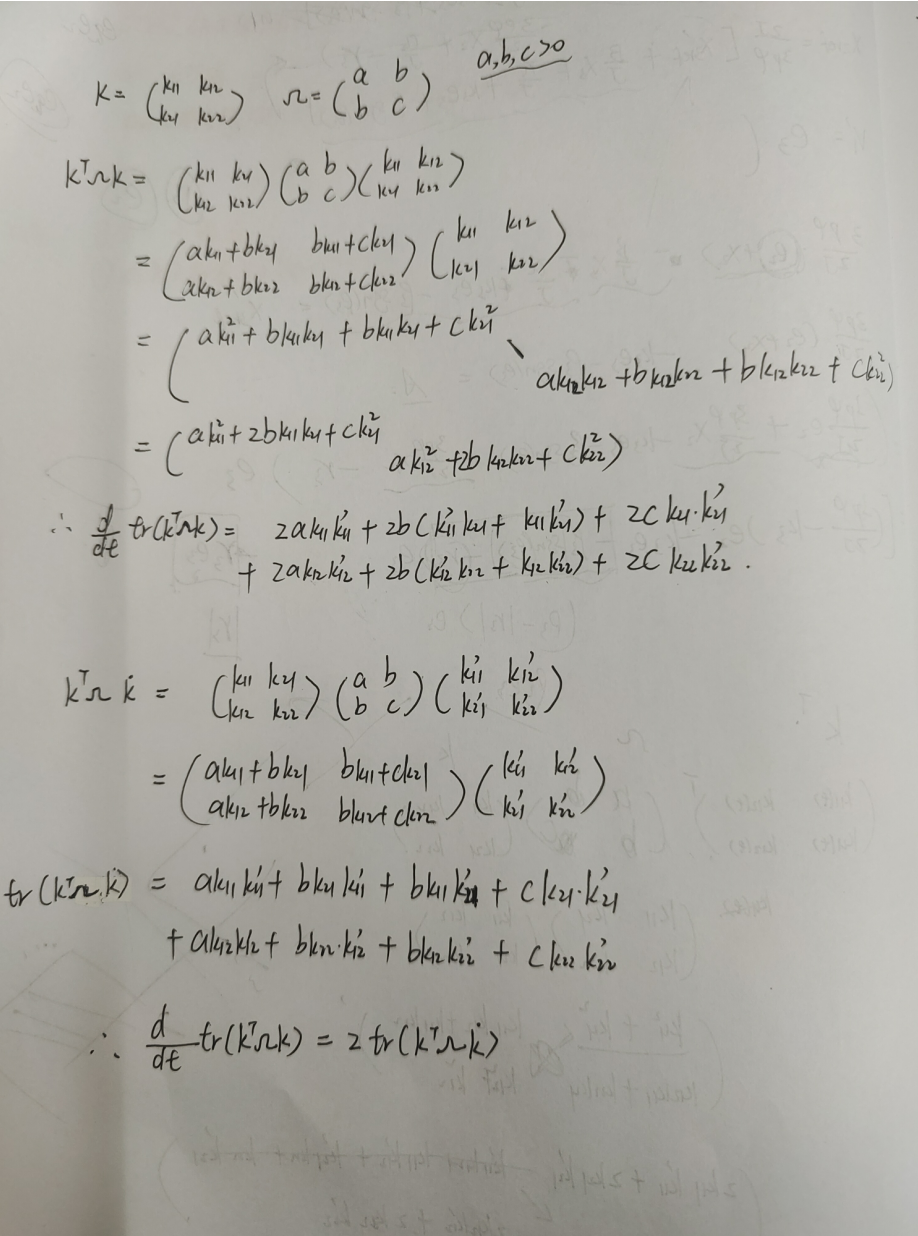 K = (k₁₁ k₁₂ ; k₂₁ k₂₂) Ω = (a b ; b c) a,b,c>0
kᵀΩk = (k₁₁ k₂₁ ; k₁₂ k₂₂)(a b ; b c)(k₁₁ k₁₂ ; k₂₁ k₂₂)
= (ak₁₁+bk₂₁ bk₁₁+ck₂₁ ; ak₁₂+bk₂₂ bk₁₂+ck₂₂)(k₁₁ k₁₂ ; k₂₁ k₂₂)
= (ak₁₁²+bk₁₁k₂₁+bk₁₁k₂₁+ck₂₁²
ak₁₂k₁₂+bk₁₂k₂₂+bk₁₂k₂₂+ck₂₂²)
= (ak₁₁²+2bk₁₁k₂₁+ck₂₁²
ak₁₂²+2bk₁₂k₂₂+ck₂₂²)
∴ d/dt tr(kᵀΩk) = 2ak₁₁k₁₁'+2b(k₁₁'k₂₁+k₁₁k₂₁')+2ck₂₁·k₂₁'
+ 2ak₁₂k₁₂'+2b(k₁₂'k₂₂+k₁₂k₂₂')+2ck₂₂k₂₂'.
kᵀΩk̇ = (k₁₁ k₂₁ ; k₁₂ k₂₂)(a b ; b c)(k₁₁' k₁₂' ; k₂₁' k₂₂')
= (ak₁₁+bk₂₁ bk₁₁+ck₂₁ ; ak₁₂+bk₂₂ bk₁₂+ck₂₂)(k₁₁' k₁₂' ; k₂₁' k₂₂')
tr(kᵀΩk̇) = ak₁₁k₁₁'+bk₂₁k₁₁'+bk₁₁k₂₁'+ck₂₁·k₂₁'
+ak₁₂k₁₂'+bk₂₂·k₁₂'+bk₁₂k₂₂'+ck₂₂k₂₂'
∴ d/dt tr(kᵀΩk) = 2tr(kᵀΩk̇)